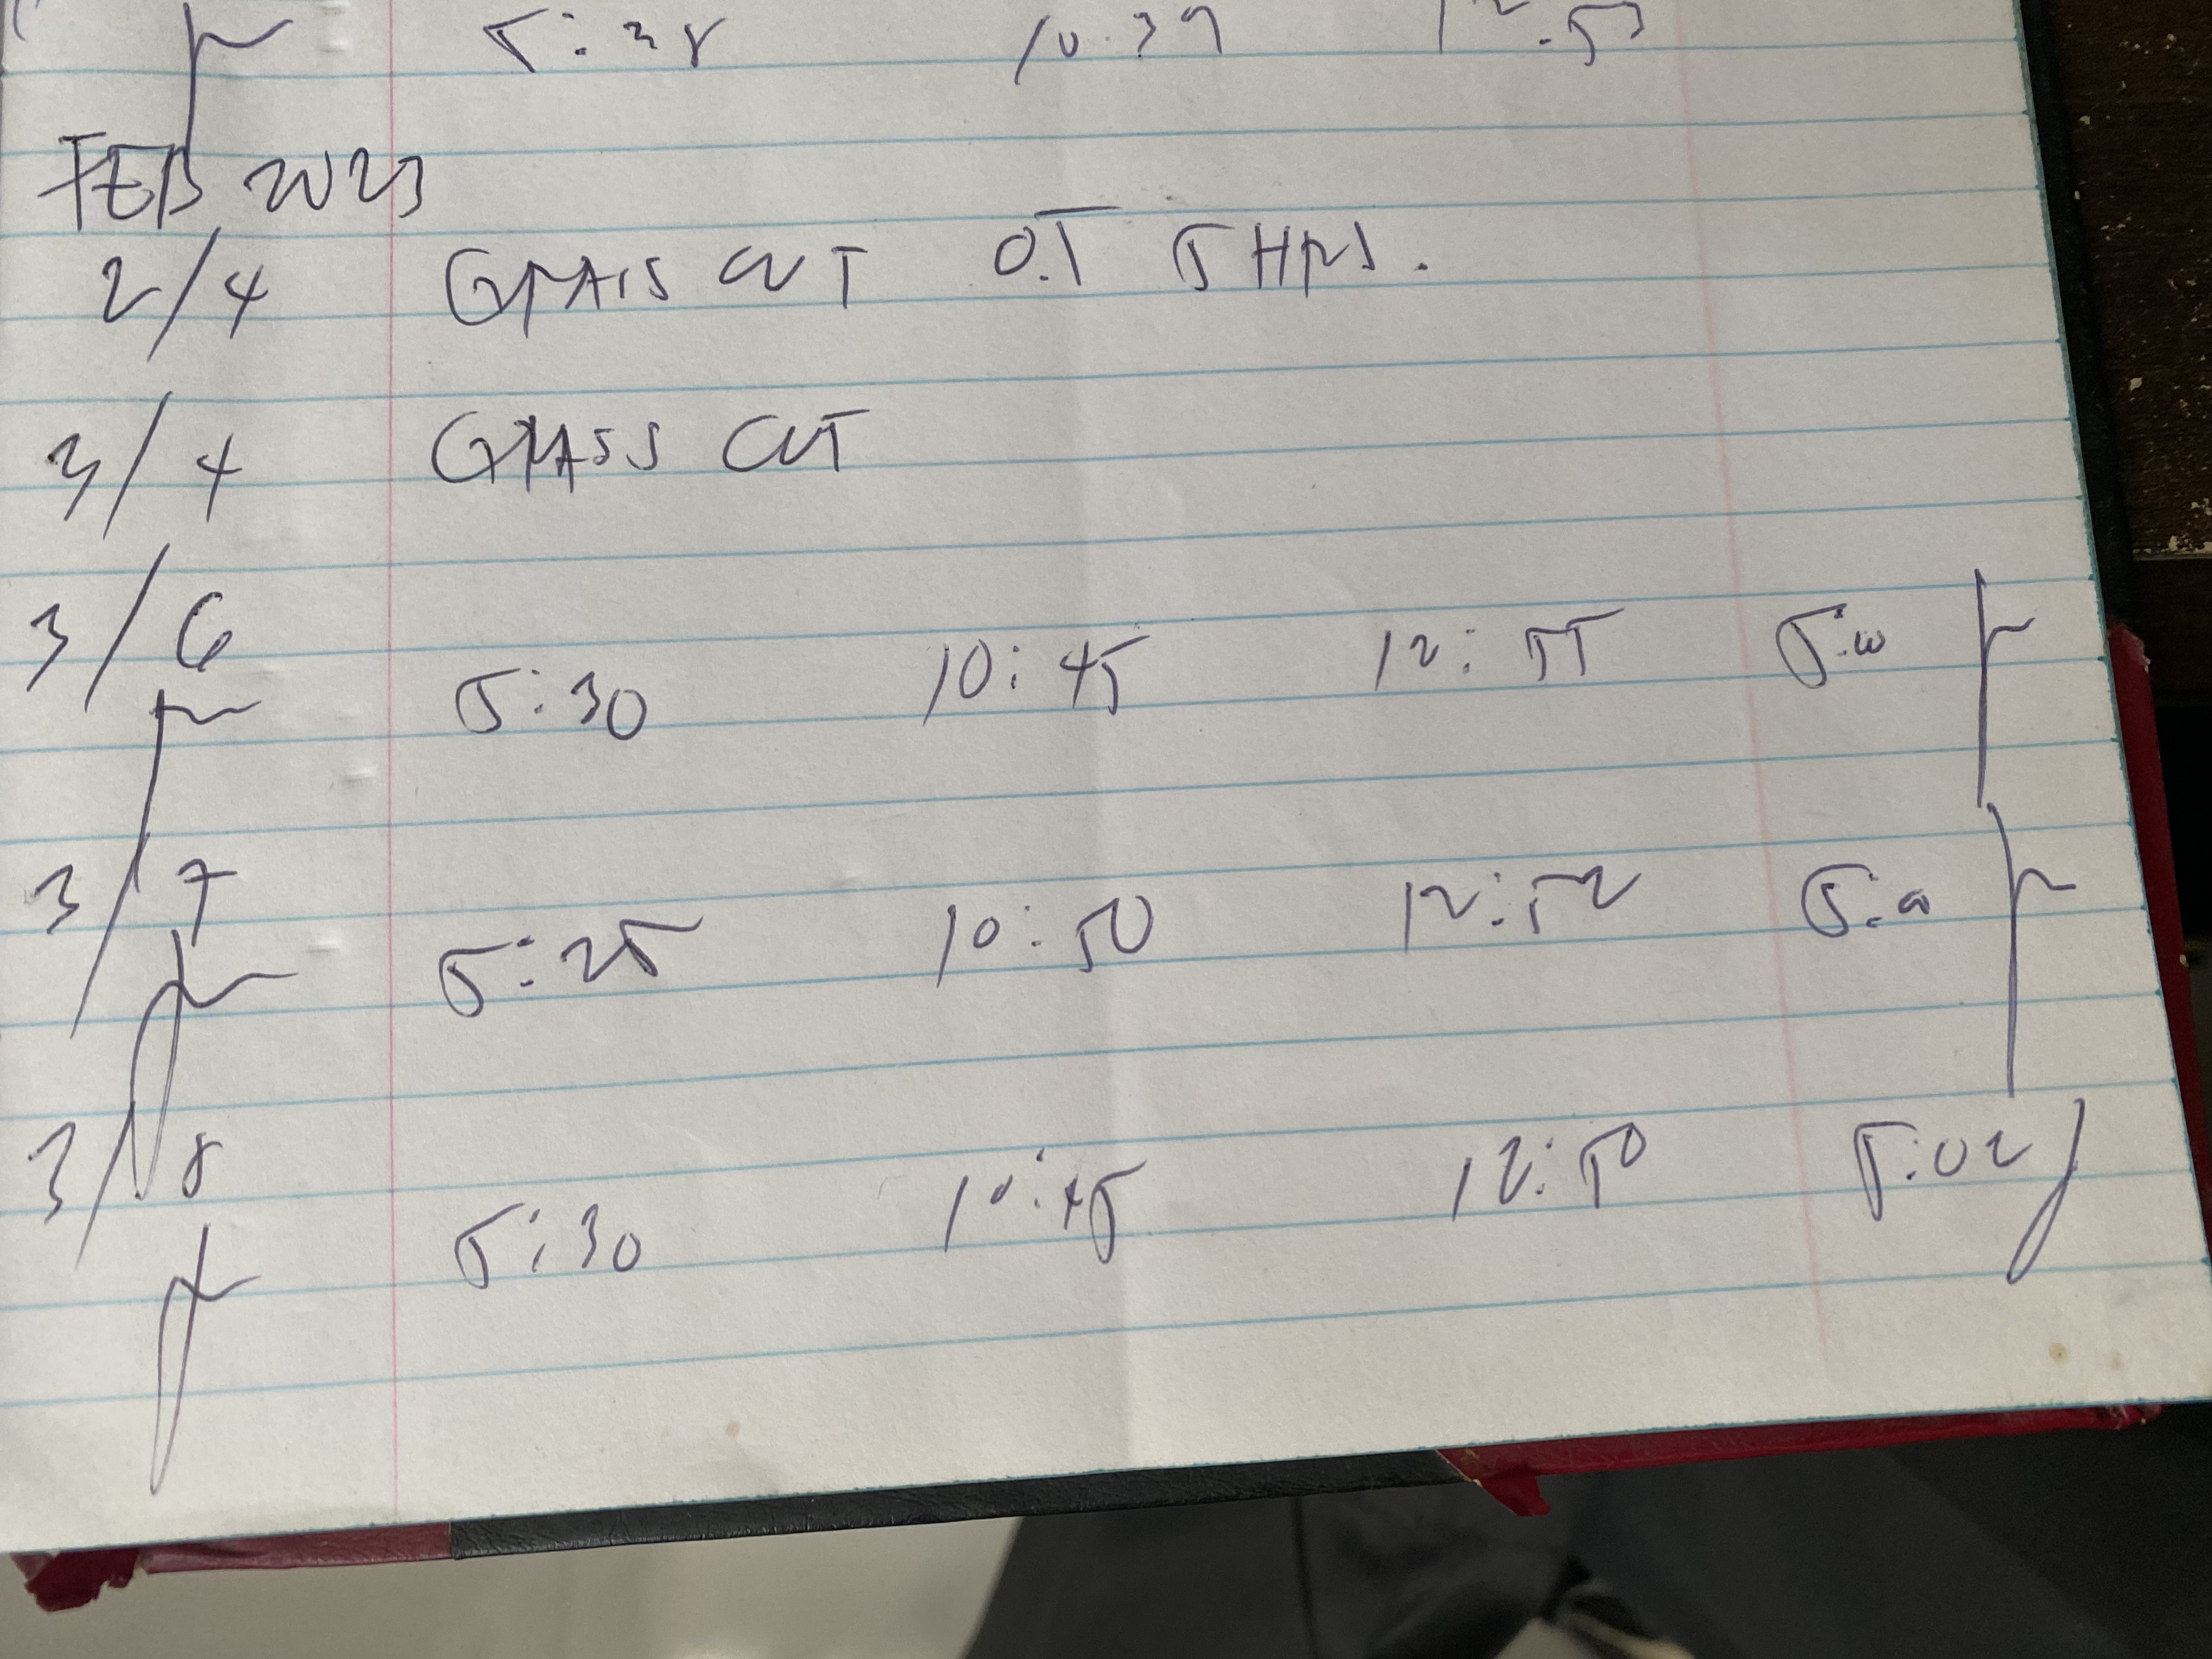 5:38 10:39 12:53
FEB 2023
2/4 GRASS CUT O.T 5 HRS.
3/4 GRASS CUT
3/6 5:30 10:45 12:55 5:00
3/7 5:25 10:50 12:52
3/8 5:30 10:45 12:50 5:02